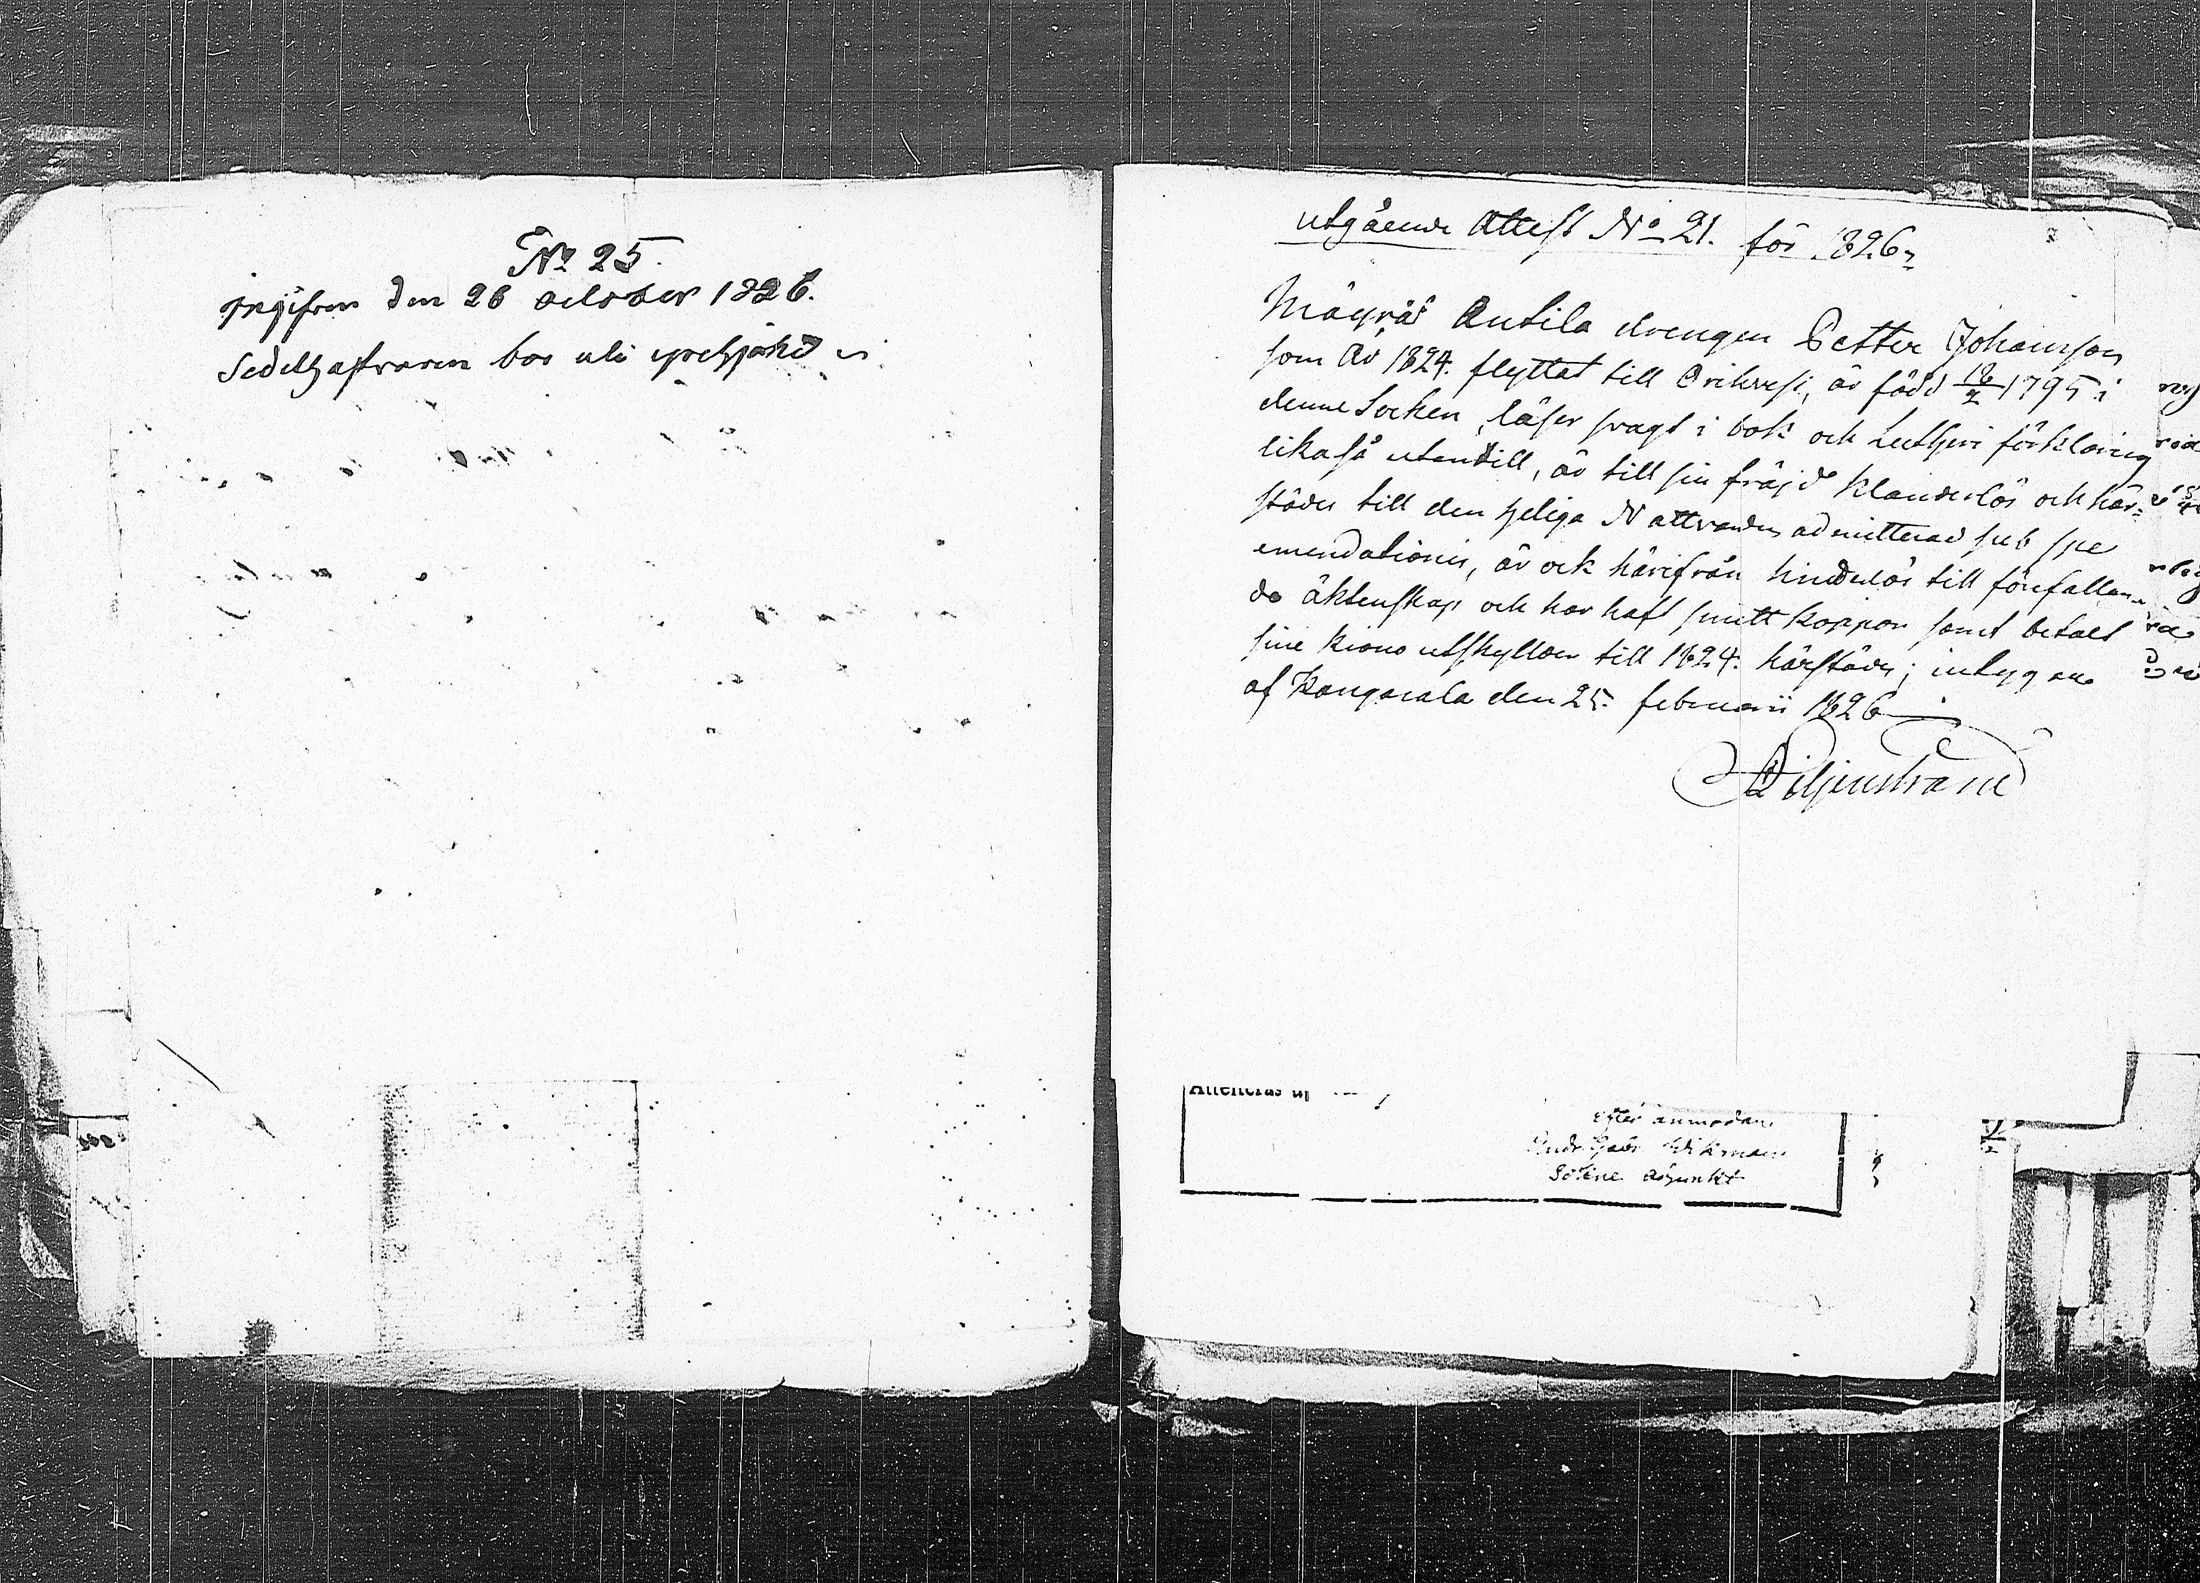 No 25.
ingifven den 26 october 1826.
Sedelhafvaren bor uti
utgående Attest No 21. för 1826.
Mäyrä Antila drengen Petter Johansson
som År 1824. flyttat till Orihvesi, är född 18/2 1795 i
denne Socken, läser svagt i bok och Lutheri förklaring
likaså utantill, är till sin fräjd klanderlös och här-
städes till den heliga Nattvarden admitterad sub spe
emendationis, är ock härifrån hinderlös till förefallan-
de äktenskap och har haft smittkoppor samt betalt
sine krono utskyllder till 1824. härstädes; intygar
af Kangasala den 25. februarii 1826
Liljenstrand
Attesteras
efter anmodan
Wikman
Sokne adjunkt